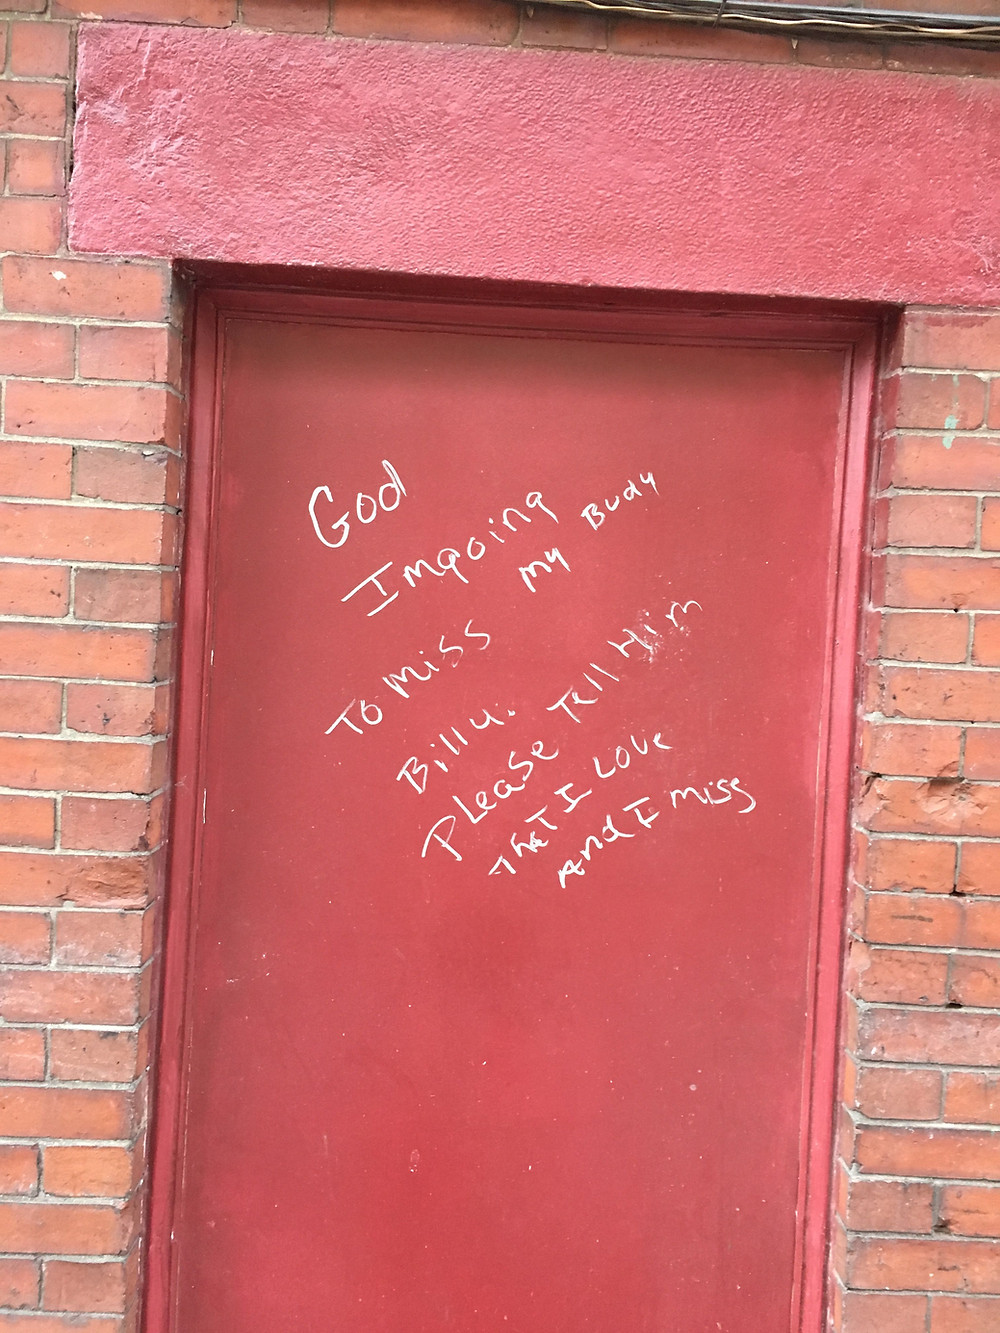 God
Imgoing
To miss my Budy
Billy.
Please Tell Him
ThaT I Love
And I miss